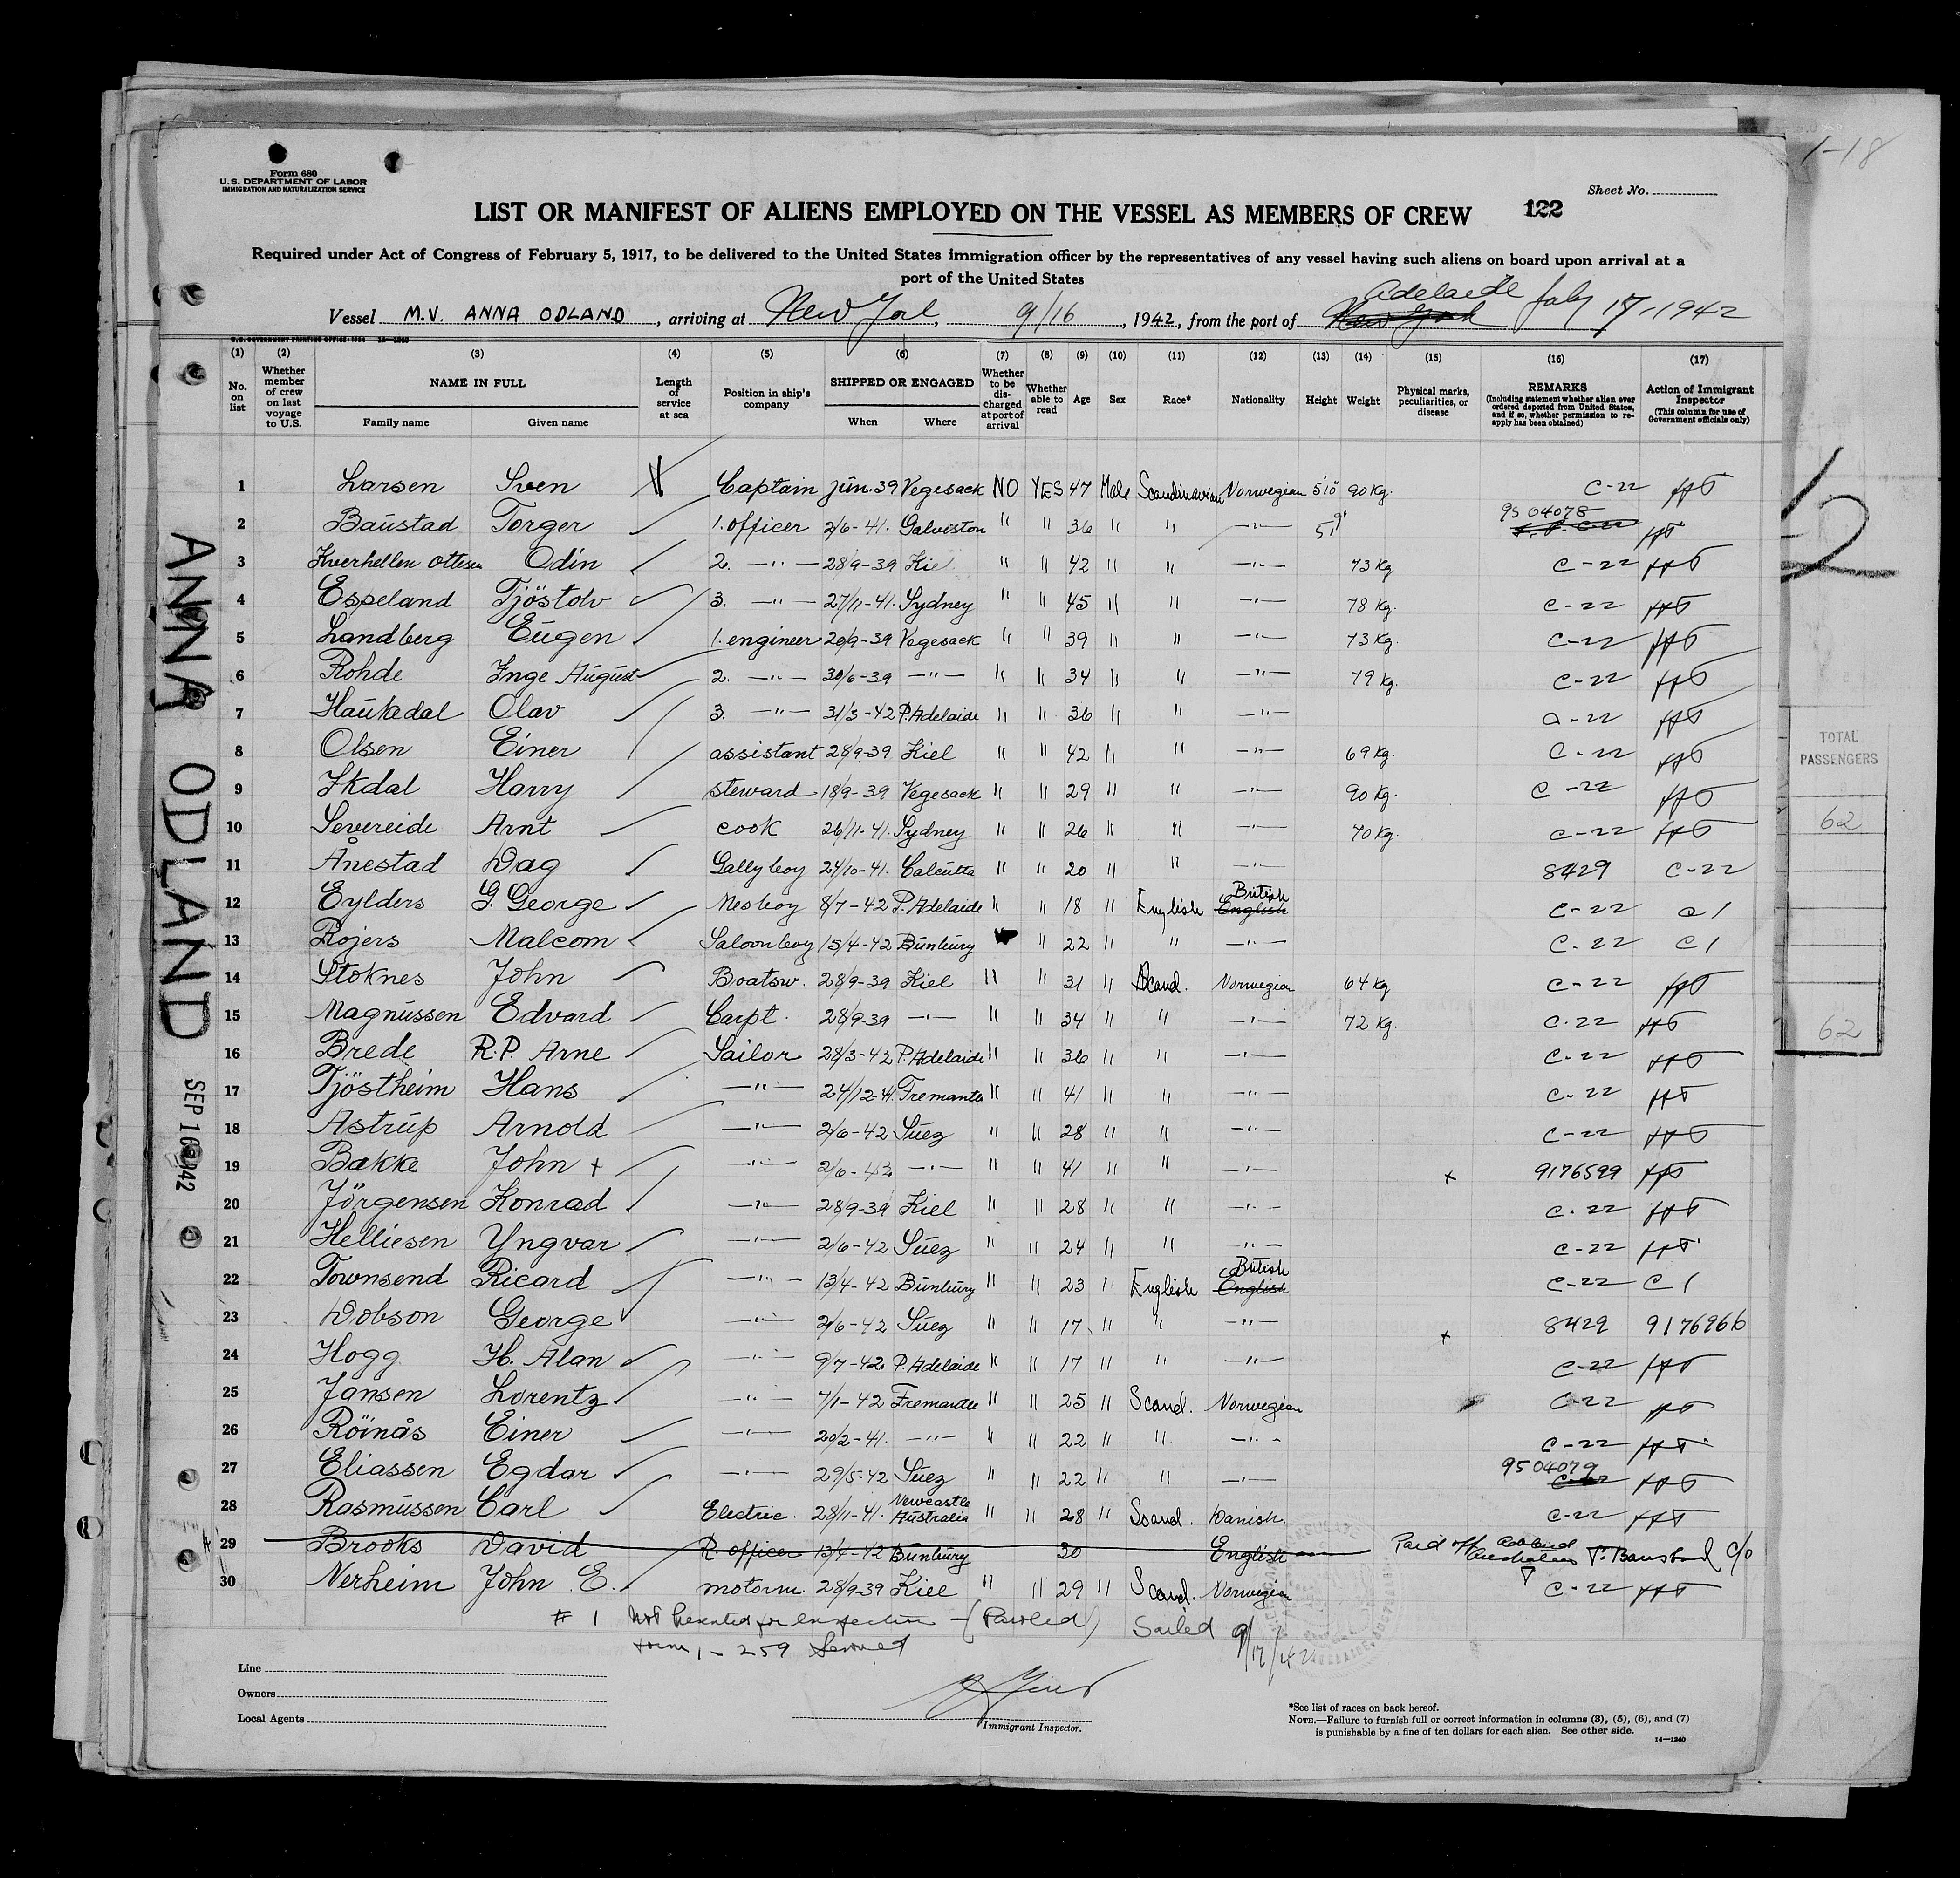 1-18
Form 680
U.S. DEPARTMENT OF LABOR
IMMIGRATION AND NATURALIZATION SERVICE
Sheet No.
LIST OR MANIFEST OF ALIENS EMPLOYED ON THE VESSEL AS MEMBERS OF CREW 122
Required under Act of Congress of February 5, 1917, to be delivered to the United States immigration officer by the representatives of any vessel having such aliens on board upon arrival at a
port of the United States
Adelaide July 17-1942
Vessel M.V. ANNA ODLAND, arriving at New York, 9/16, 1942, from the port of New York
U.S. GOVERNMENT PRINTING OFFICE 14-1240
(1) (2) (3) (4) (5) (6) (7) (8) (9) (10) (11) (12) (13) (14) (15) (16) (17)
No. on list
Whether member of crew on last voyage to U.S.
NAME IN FULL
Family name Given name
Length of service at sea
Position in ship's company
SHIPPED OR ENGAGED
When Where
Whether to be discharged at port of arrival
Whether able to read
Age Sex Race* Nationality Height Weight
Physical marks, peculiarities, or disease
REMARKS
(Including statement whether alien ever ordered deported from United States, and if so, whether permission to reapply has been obtained)
Action of Immigrant Inspector
(This column for use of Government officials only)
1 Larsen Sven Captain jun. 39 Vegesack NO YES 47 Male Scandinavian Norwegian 5'10" 90 Kg. C-22
2 Baustad Torger 1. officer 2/6-41. Galviston " " 36 " " —"— 5'9" 9504078
3 Kverhellen Ottesen Odin 2. —"— 28/9-39 Kiel " " 42 " " —"— 73 Kg C-22
4 Espeland Tjöstolv 3. —"— 27/11-41. Sydney " " 45 " " —"— 78 Kg. C-22
5 Landberg Eugen 1. engineer 20/9-39 Vegesack " " 39 " " —"— 73 Kg. C-22
6 Rohde Inge August 2. —"— 30/6-39 —"— " " 34 " " —"— 79 Kg. C-22
7 Haukedal Olav 3. —"— 31/3-42 P. Adelaide " " 36 " " —"— C-22
8 Olsen Einer assistant 28/9-39 Kiel " " 42 " " —"— 69 Kg. C-22
9 Ikdal Harry steward 18/9-39 Vegesack " " 29 " " —"— 90 Kg. C-22
10 Severeide Arnt cook 26/11-41. Sydney " " 26 " " —"— 70 Kg. C-22
11 Ånestad Dag Gallyboy 24/10-41. Calcutta " " 20 " " —"— 8429 C-22
12 Eylders G. George Mesboy 8/7-42 P. Adelaide " " 18 " English British English C-22 C1
13 Rojers Malcom Saloonboy 15/4-42 Bunbury " 22 " " —"— C-22 C1
14 Stoknes John Boatsw. 28/9-39 Kiel " " 31 " Scand. Norwegian 64 Kg C-22
15 Magnussen Edvard Carpt. 28/9-39 —"— " " 34 " " —"— 72 Kg. C-22
16 Brede R.P. Arne Sailor 28/3-42 P. Adelaide " " 36 " " —"— C-22
17 Tjöstheim Hans —"— 24/12-41. Fremantle " " 41 " " —"— C-22
18 Astrup Arnold —"— 2/6-42 Suez " " 28 " " —"— C-22
19 Bakke John + —"— 2/6-42 —"— " " 41 " " —"— x 9176599
20 Jörgensen Konrad —"— 28/9-39 Kiel " " 28 " " —"— C-22
21 Helliesen Yngvar —"— 2/6-42 Suez " " 24 " " —"— C-22
22 Townsend Ricard —"— 13/4-42 Bunbury " " 23 " English British English C-22 C1
23 Dobson George —"— 2/6-42 Suez " " 17 " " —"— x 8429 9176966
24 Hogg H. Alan —"— 9/7-42 P. Adelaide " " 17 " " —"— C-22
25 Jansen Lorentz —"— 7/1-42 Fremantle " " 25 " Scand. Norwegian C-22
26 Röinås Einer —"— 20/2-41. —"— " " 22 " " —"— C-22
27 Eliassen Egdar —"— 29/5-42 Suez " " 22 " " —"— 9504079 C-22
28 Rasmussen Carl Electric. 28/11-41. Newcastle Australia " " 28 " Scand. Danish. C-22
29 Brooks David R. officer 13/4-42 Bunbury 30 English Paid off Adelaide Australia T. Baustad C/O
30 Nerheim John E. motorm. 28/9-39 Kiel " " 29 " Scand. Norwegian C-22
# 1 Not presented for inspection - (Paroled) Sailed 9/17/42
Form 1-259 Served
Line
Owners
Local Agents
Immigrant Inspector.
*See list of races on back hereof.
NOTE.—Failure to furnish full or correct information in columns (3), (5), (6), and (7)
is punishable by a fine of ten dollars for each alien. See other side.
14—1240
ANNA ODLAND
SEP 16 1942
12
TOTAL
PASSENGERS
62
62